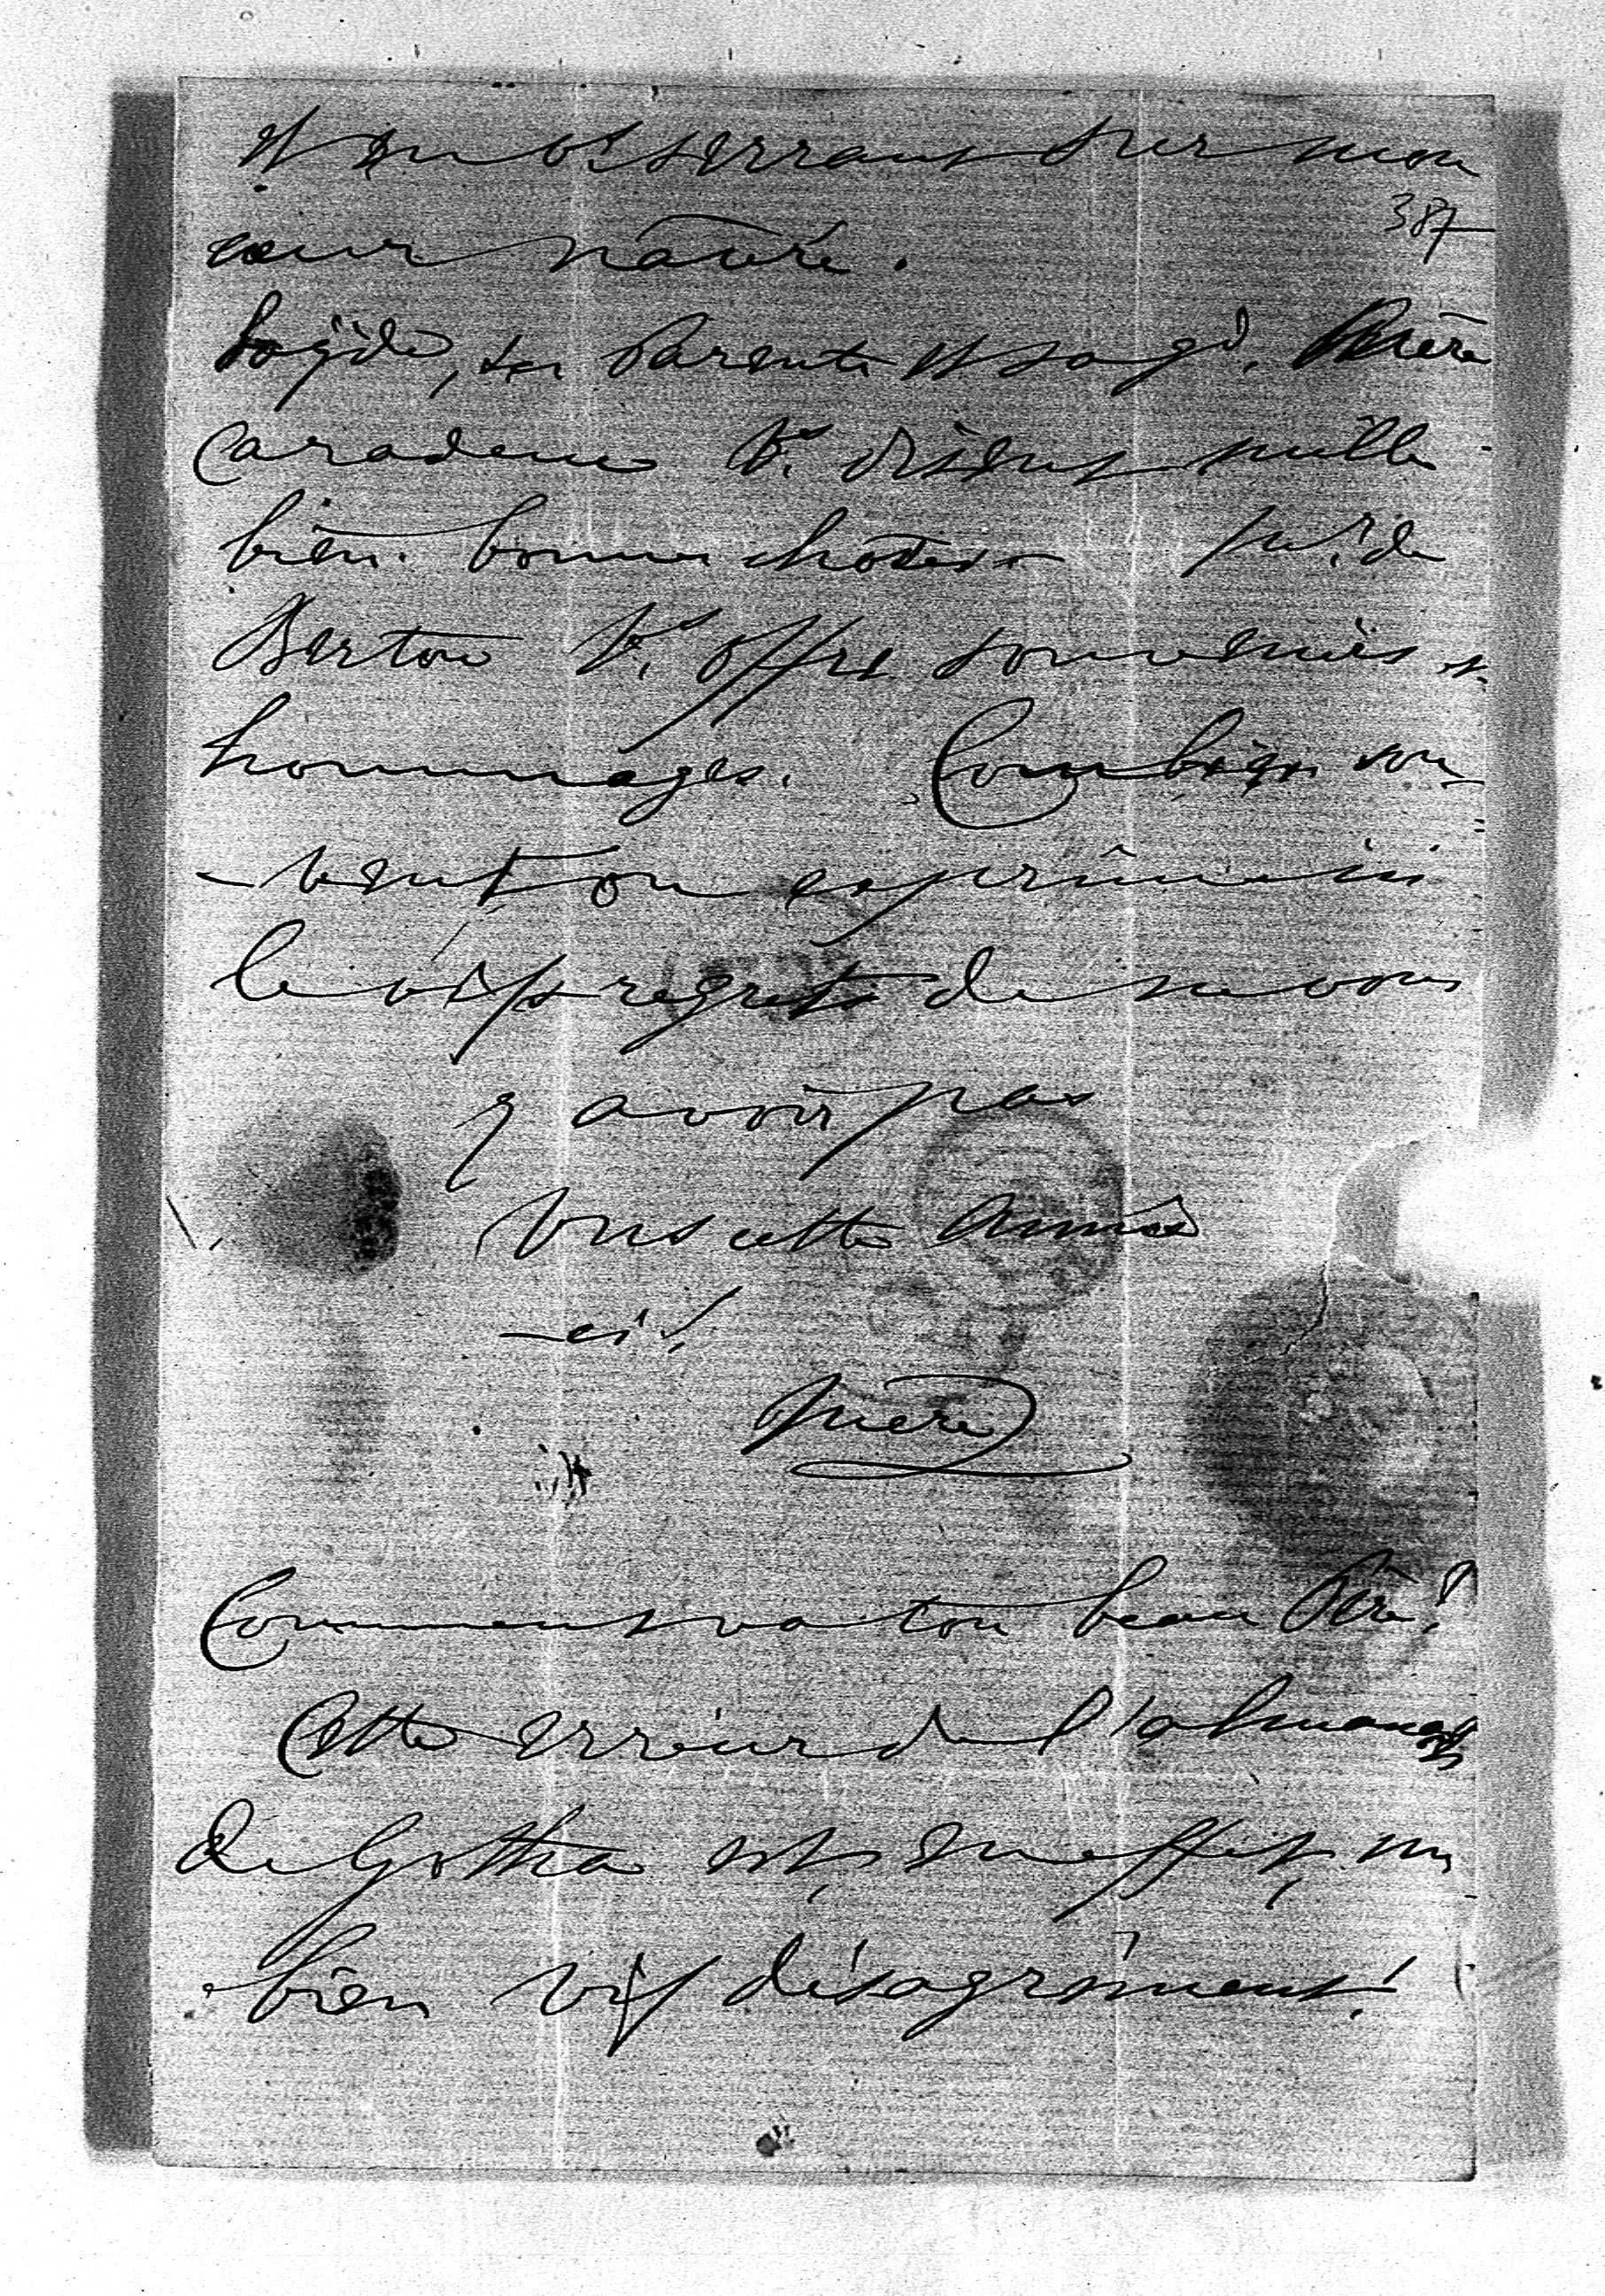 et en vs serrant sur mon
387
cœur navré.
ses Parents et sa gd. Mère
Caradeuc Vs. disent mille
bien bonnes choses
Berton Vs. offre souvenirs et
hommages. Combien sou
-vent on exprime ici
le vif regret de ne vous
y avoir pas
vus cette année
-ci!
Mère
Comment va ton beau Père?
Cette erreur de l'almanach
de Gotha est, en effet, un
bien vif désagrément!